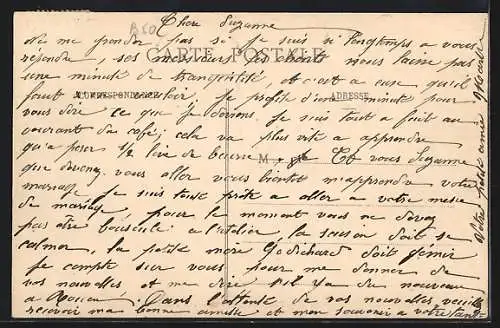 Chère Suzanne
Ne me gronder pas si je suis si longtemps a vous
répondre, ses messieurs les nous laisse pas
CARTE POSTALE
une minute de tranquilité et c'est a ceux qu'il
faut Je profite d'une minute pour
CORRESPONDANCE
ADRESSE
vous dire ce que je deviens. Je suis tout a fait au
courant du café; cela va plus vite a apprendre
qu'a peser ½ livre de beurre Et vous Suzanne
M
que devenez vous aller vous bientôt m'apprendre votre
mariage je suis toute prète a aller a votre messe
de mariage, pour le moment vous ne devez
pas être bousculé a l'atelier, la saison doit se
calmer, la petite mère doit gémir
Je compte sur vous pour me donner de
vos nouvelles et me dire s'il y a du nouveau
a Dans l'attente de vos nouvelles, veuillez
recevoir ma bonne amitié et mon souvenir a votre
Votre petite amie